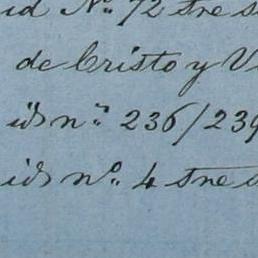 id Nº 72 tre s
de Cristo y V
ids nº 236/239
ids nº 4 tre s